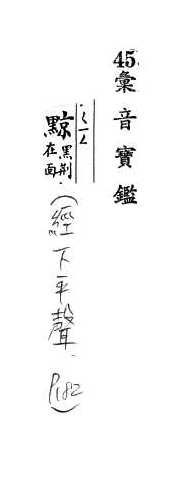 45.彙音寶鑑
ㄑㄧㄥ
黥 黑刑在面.
(經下平聲. P182)